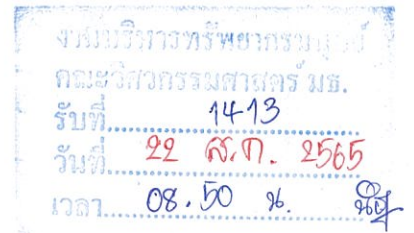 งานบริหารทรัพยากรมนุษย์
คณะวิศวกรรมศาสตร์ มธ.
รับที่ 1413
วันที่ 22 ส.ค. 2565
เวลา 08.50 น.